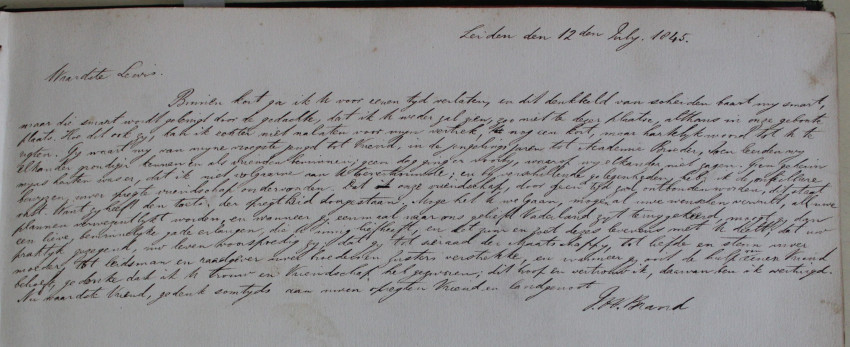 Leiden den 12den July. 1845.
Waardste Lewis.
Binnen kort ga ik U voor eenen tyd verlaten, en dit denkbeeld van scheiden baart my smart,
maar die smart wordt gelenigd door de gedachte, dat ik U weder zal zien, zoo niet te dezer plaatse, althans in onze geboorte
plaats. Hoe dit ook zy, kan ik echter niet nalaten voor myn vertrek, U nog een kort, maar hartelyk woord tot U te
rigten. Gy waart my van myne vroegste jeugd tot Vriend, in de jongelings jaren tot Academie Broeder, toen leerden wy
elkander grondiger kennen en als vrienden beminnen; geen dag ging er voorby, waarop wy elkander niet zagen, geen geheim
myns harten was er, dat ik niet volgaarne aan U toevertrouwde; en by verschillende gelegenheden, heb ik de onfeilbare
bewyzen, uwer groote vriendschap ondervonden. Dat onze vriendschap, door geen tyd zal ontbonden worden,
want zy heeft den toets, der opregtheid doorgestaan. Moge het U welgaan, mogen al uwe wenschen vervuld, al uwe
plannen verwezentlykt worden, en wanneer gy eenmaal naar ons geliefd Vaderland zyt teruggekeerd, moogt gy dan
een lieve, beminnelyke gade erlangen, die U innig liefheeft, en het zuur en zoet dezes levens met U deelt; dat uw
praktyk zegenend, uw leven voorspoedig zy, dat gy tot sieraad der Maatschappy, tot liefde en steun uwer
moeder, tot leidsman en raadgever uwer zusters verstrekke, en wanneer gy ooit de hulp eenes Vriend
behoeft, gedenke dat ik U trouw en Vriendschap heb gezworen; dit hoop en vertrouw ik, daarvan ben ik overtuigd.
Nu waardste Vriend, gedenk somtyds aan uwen opregten Vriend en landgenoot
J.H. Brand